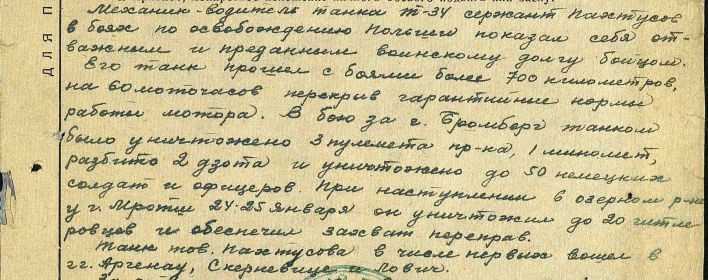 Механик-водитель танка Т-34 сержант Пахтусов
в боях по освобождению Польши показал себя от-
важным и преданным воинскому долгу бойцом.
Его танк прошел с боями более 700 километров,
на 60 моточасов перекрыв гарантийные нормы
работы мотора. В бою за г. Бромберг танком
было уничтожено 3 пулемета пр-ка, 1 миномет,
разбито 2 дзота и уничтожено до 50 немецких
солдат и офицеров. При наступлении в озерном р-не
у г. Мротши 24-25 января он уничтожил до 20 гитле
ровцев и обеспечил захват переправ.
Танк тов. Пахтусова в числе первых вошел в
гг. Аргенау, Скерневице и Лович.
ДЛЯ П